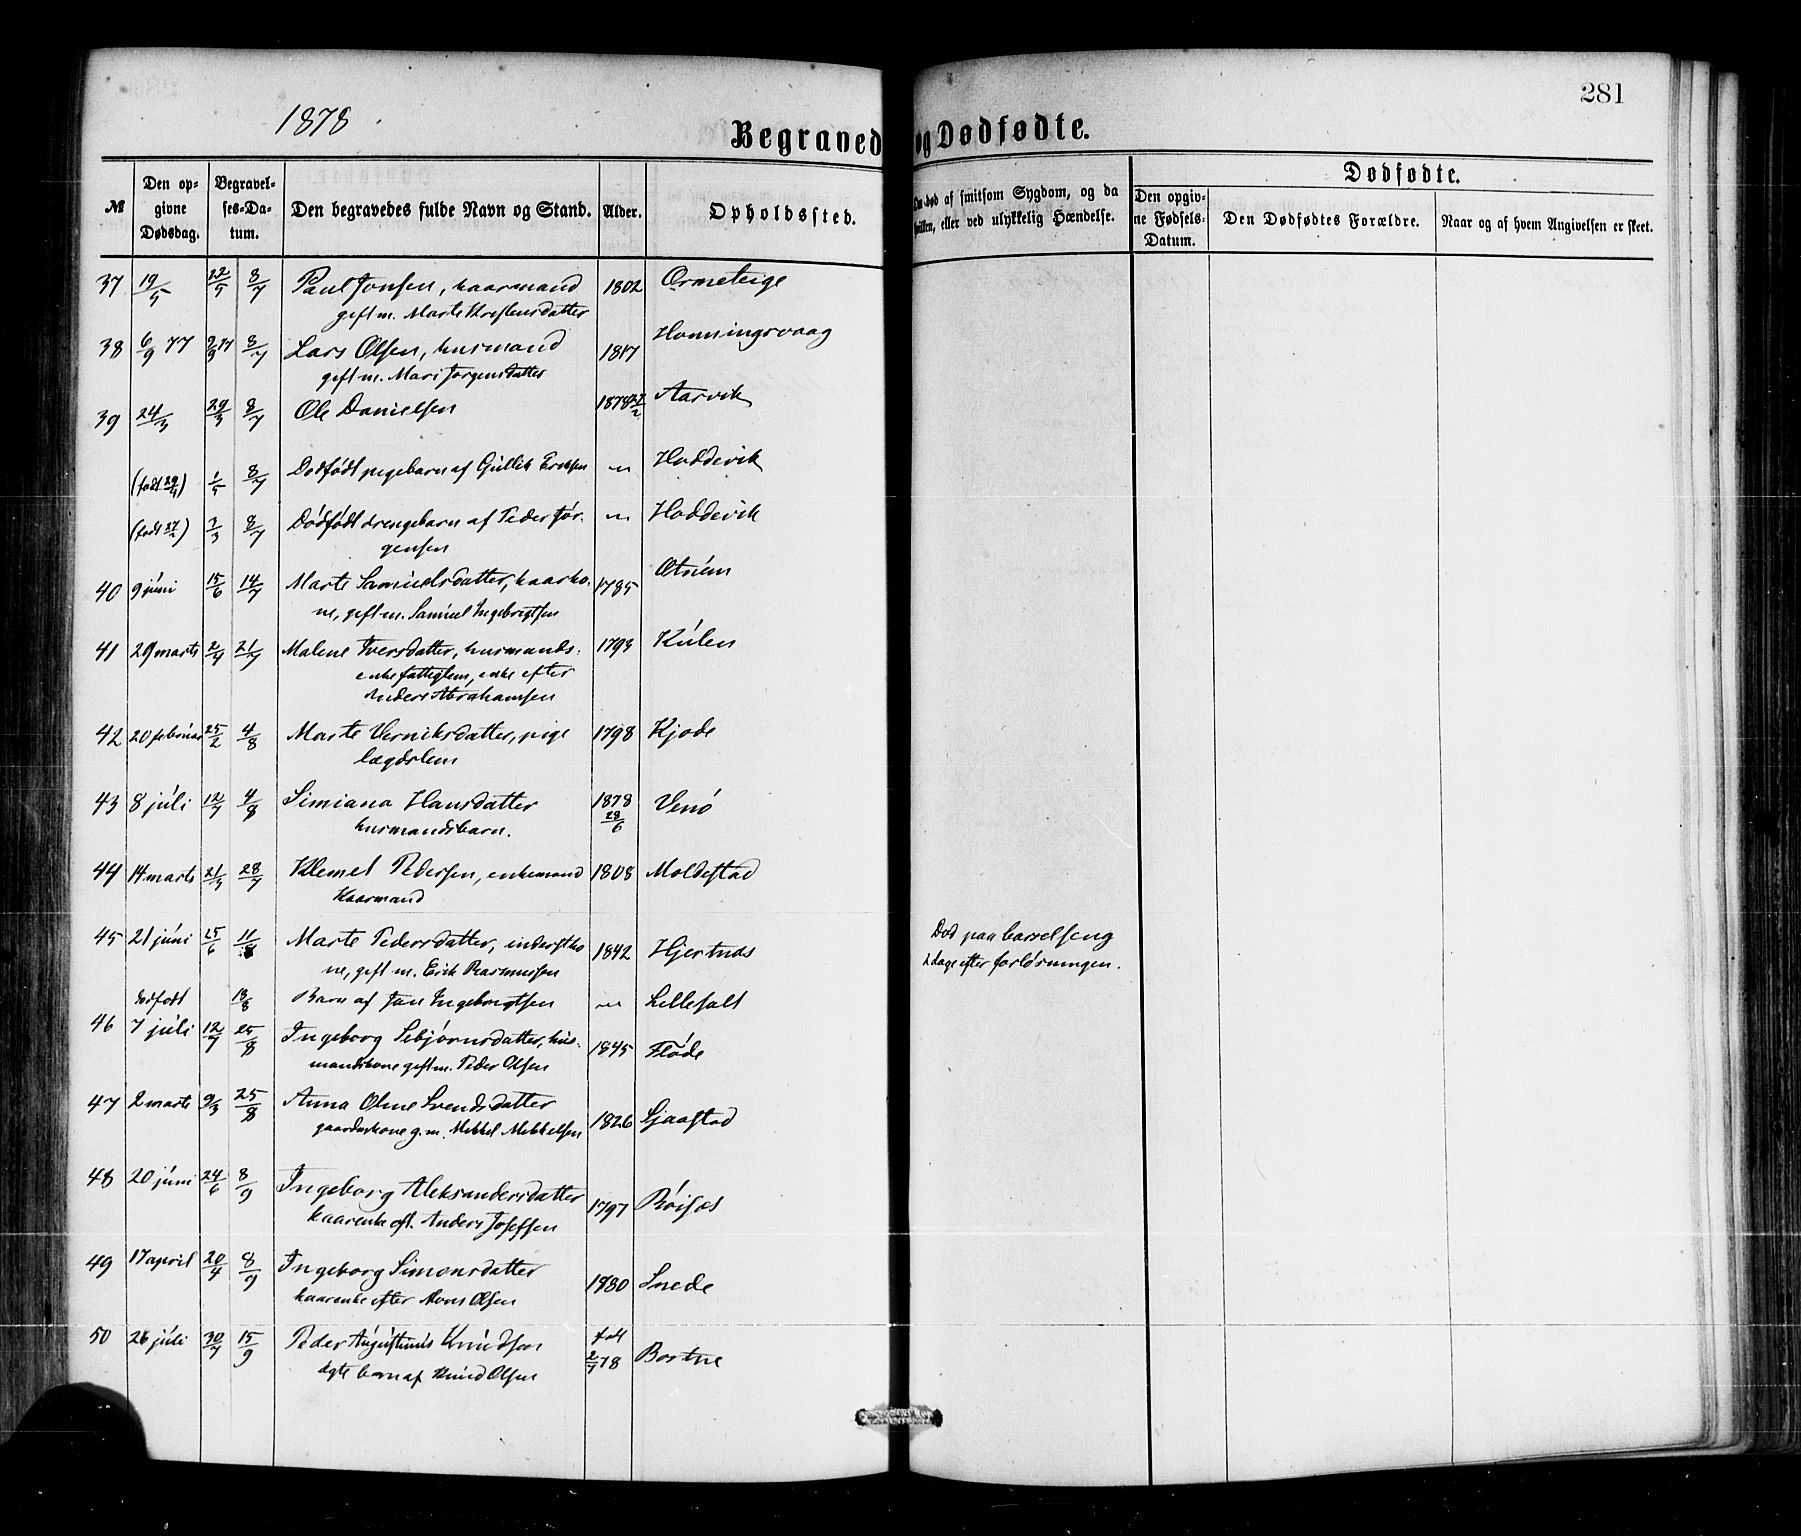 281
1878
Begravede og Dødfødte.
№
Den opgivne Dødsdag.
Begravelses-Datum.
Den begravedes fulde Navn og Stand.
Alder.
Opholdssted.
død af smitsom Sygdom, og da
hvilken, eller ved ulykkelig Hændelse.
Dødfødte.
Den opgivne Fødsels-Datum.
Den Dødfødtes Forældre.
Naar og af hvem Angivelsen er skeet.
37 19/5 22/5 8/7 Paul Jonsen, kaarmand 1802 Ormeteige
gift m. Marte Kristensdatter
38 6/9 77 9/9 77 8/7 Lars Olsen, husmand 1817 Honningsvaag
gift m. Mari Jørgensdatter
39 24/3 29/3 8/7 Ole Danielsen 1878 27/2 Aarvik
(født 29/4) 1/5 8/7 Dødfødt pigebarn af Gullik Eriksen „ Hoddevik
(født 27/2) 3/3 8/7 Dødfødt drengebarn af Peder Jør- „ Hoddevik
gensen
40 9 júni 15/6 14/7 Marte Samúelsdatter, kaarko- 1785 Otnem
ne, gift m. Samúel Ingebrigtsen
41 29 marts 2/4 21/7 Malene Iversdatter, husmands- 1793 Kúlen
enke fattiglem, enke efter
Anders Abrahamsen
42 20 febrúar 25/2 4/8 Marte Verniksdatter, pige 1798 Kjøde
lægdslem
43 8 júli 12/7 4/8 Simiana Hansdatter 1878 28/6 Venø
husmandsbarn.
44 14 marts 21/3 28/7 Klemet Pedersen, enkemand 1808 Moldestad
Kaarmand
45 21 júni 25/6 11/8 Marte Pedersdatter, inderstko- 1842 Hjertnæs Død paa barselseng
ne, gift m. Erik Rasmussen 2 dage efter forløsningen.
dødfødt 18/8 Barn af Jon Ingebrigtsen „ Lillesalt
46 7 júli 12/7 25/8 Ingeborg Sebjørnsdatter, hús- 1845 Fløde
mandskone gift m. Peder Olsen
47 2 marts 9/3 25/8 Anna Oline Svendsdatter 1826 Sjaastad
gaardskone g. m. Mikkel Mikkelsen
48 20 júni 24/6 8/9 Ingeborg Aleksandersdatter 1797 Røisæt
kaarenke eft. Anders Josefsen
49 17 april 20/4 8/9 Ingeborg Simonsdatter 1780 Snede
kaarenke efter Mons Olsen
50 26 júli 30/7 15/9 Peder Augustinus Knúdsen født 2/7 78 Bortne
ægte barn af Knúd Olsen